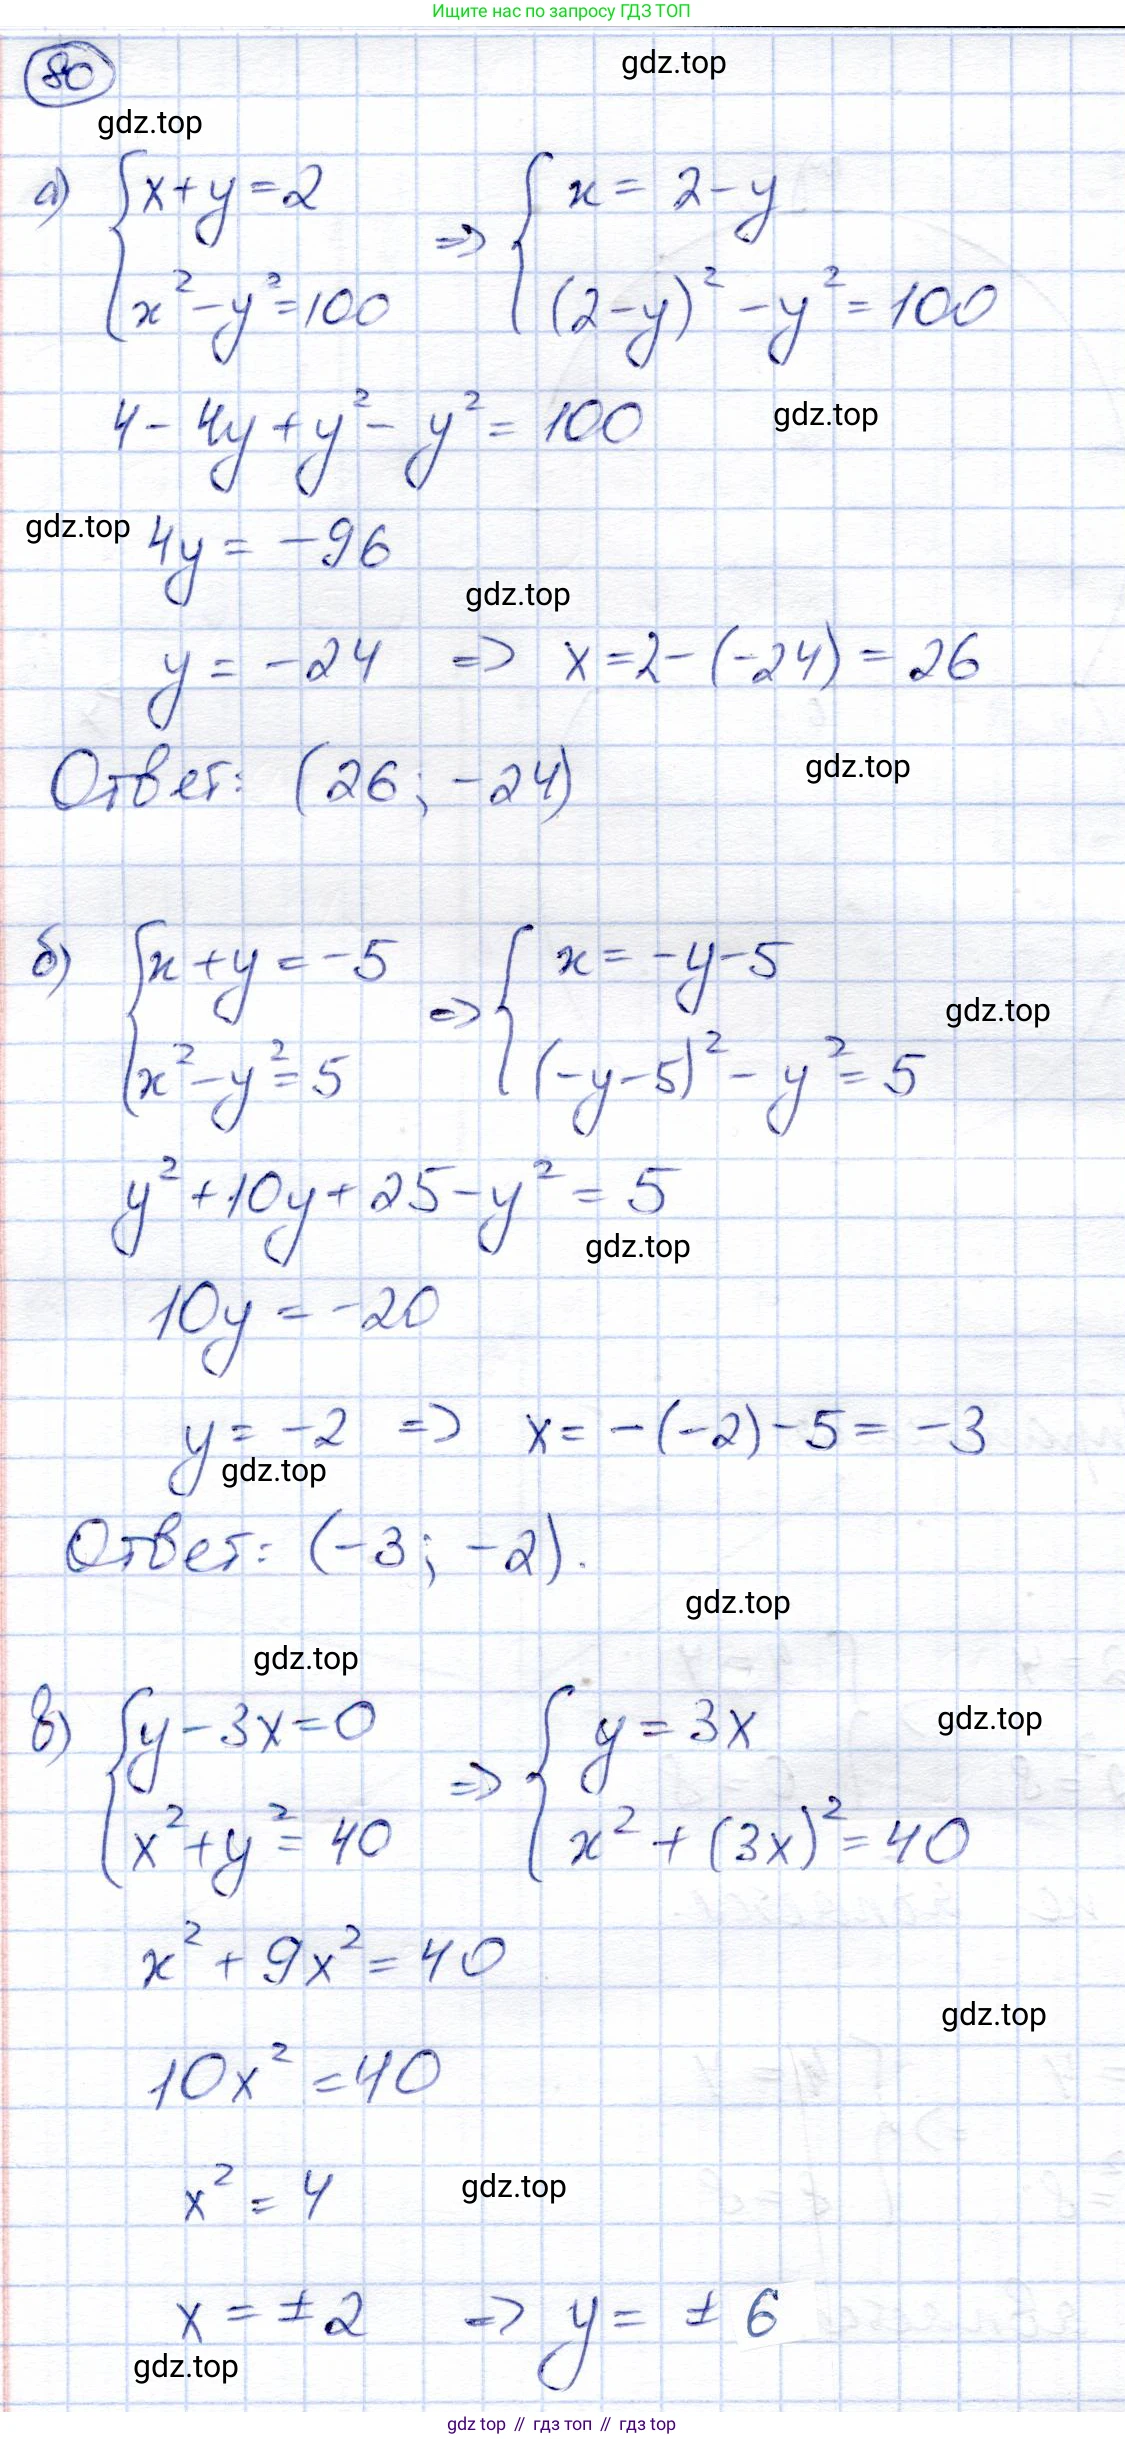 Ищите нас по запросу ГДЗ ТОП
80
gdz.top
gdz.top
а) { x+y=2 => { x = 2-y
x²-y²=100 (2-y)² - y² = 100
4 - 4y + y² - y² = 100
gdz.top
gdz.top
4y = -96
gdz.top
y = -24 => x=2-(-24) = 26
Ответ: (26; -24)
gdz.top
б) { x+y=-5 => { x = -y-5
gdz.top
x²-y²=5 (-y-5)² - y² = 5
y² + 10y + 25 - y² = 5
gdz.top
10y = -20
y = -2 => x = -(-2)-5 = -3
gdz.top
Ответ: (-3; -2).
gdz.top
gdz.top
в) { y-3x=0 => { y = 3x
gdz.top
x²+y²=40 x² + (3x)² = 40
x² + 9x² = 40
gdz.top
10x² = 40
x² = 4
gdz.top
x = ±2 => y = ± 6
gdz.top
gdz top // гдз топ // гдз top